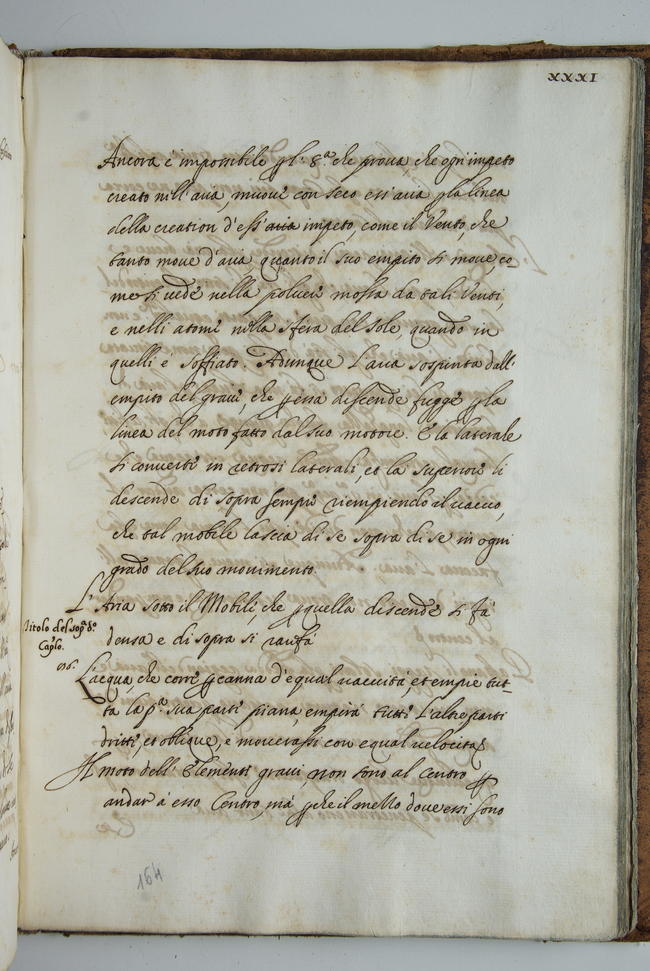 XXXI
Ancora è impossibile p l. 8.ª che prova, che ogni impeto
creato nell'aria, muove con seco ess'aria p la linea
della creation d'ess' aria impeto, come il Vento, che
tanto move d'aria quanto il suo empito si move, co-
me si vede nella polvere mossa da tali Venti,
e nelli atomi nella sfera del sole, quando in
quelli è soffiato. Adunque l'aria sospinta dall'
empito del grave, che p essa discende fugge p la
linea del moto fatto dal suo motore. E la laterale
si converte in retrosi laterali, et la superiore li
descende di sopra sempre riempiendo il vacuo,
che tal mobile lascia di se sopra di se in ogni
grado del suo movimento.
L'Aria sotto il Mobile, che p quella discende si fa
Titolo del sop.ª d.º
Cap.lo.
densa e di sopra si rarefà
96.
L'acqua, che corre p canna d'equal vacuità, et empie tut-
ta la p.ª sua parte piana empirà tutte l'altre parti
dritte, et oblique, e moverassi con equal velocità
Il moto dell' Elementi gravi, non sono al centro p
andar à esso Centro, mà p che il mezzo dove essi sono
164